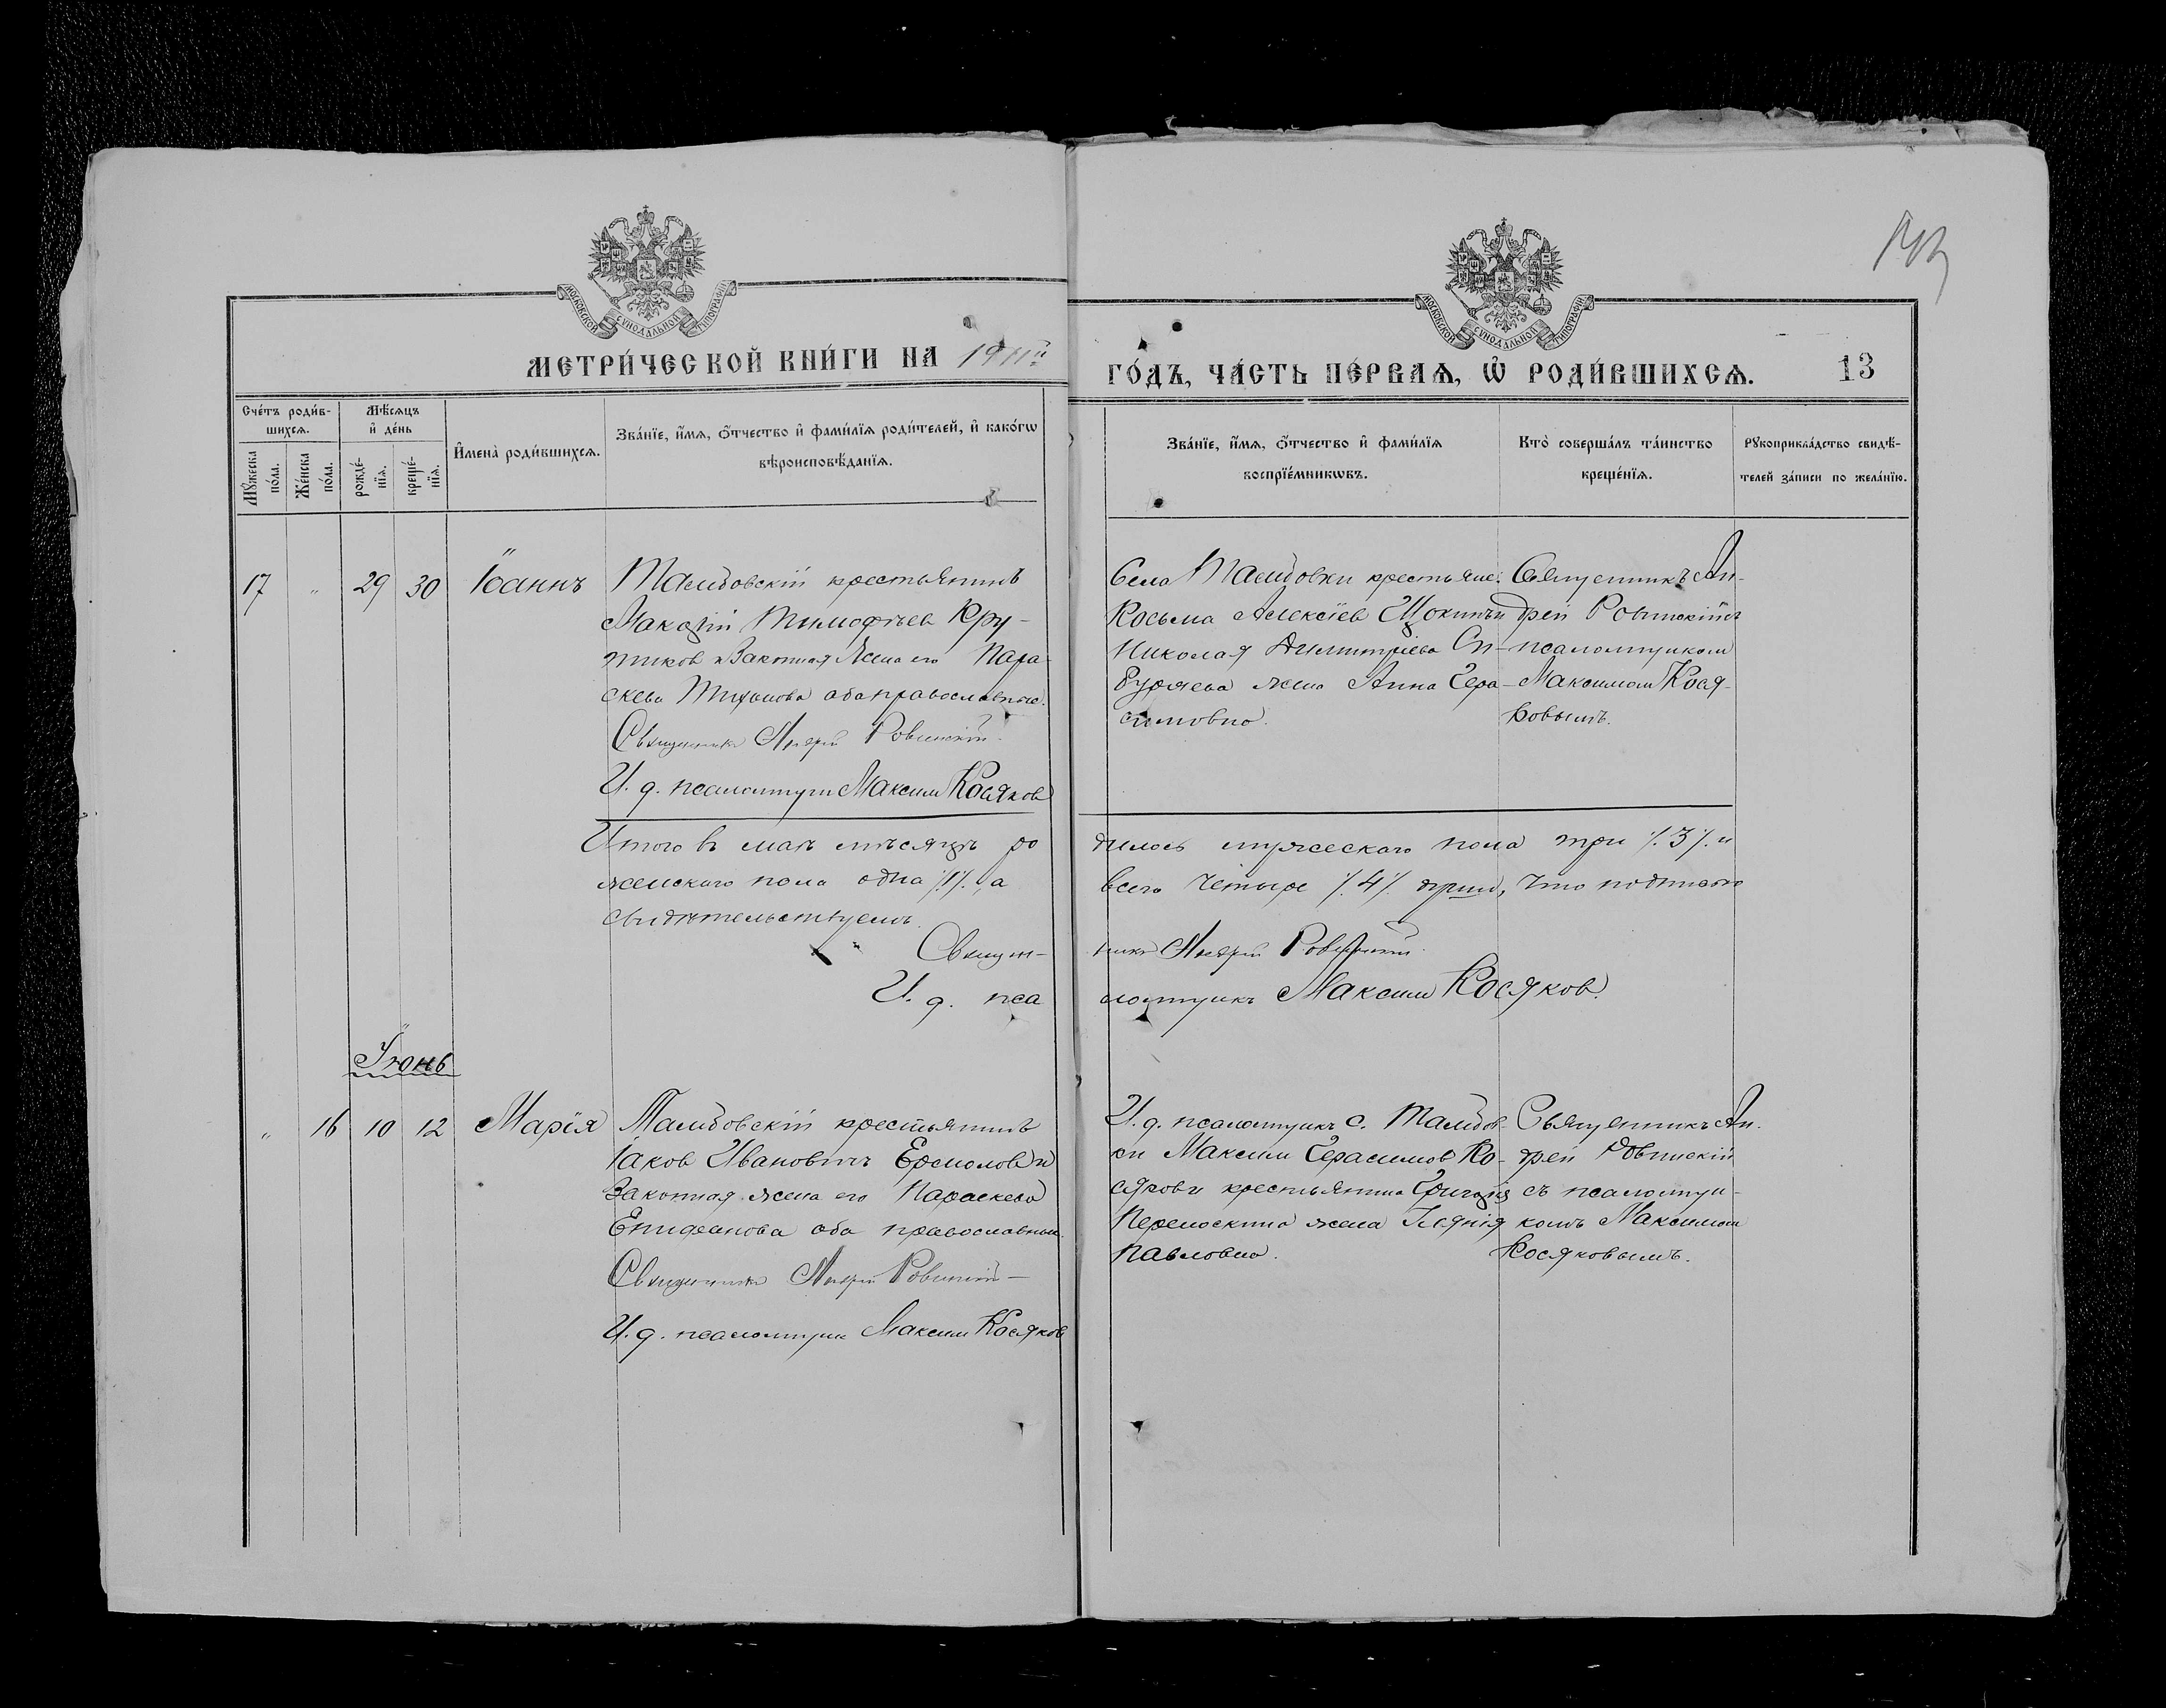 МОСКОВСКОЙ СѴНОДАЛЬНОЙ ТИПОГРАФІИ
МОСКОВСКОЙ СѴНОДАЛЬНОЙ ТИПОГРАФІИ
МЕТРИ́ЧЕСКОЙ КНИ́ГИ НА 1911й
ГО́ДЪ, ЧА́СТЬ ПЕ́РВАѦ, Ѡ҆ РОДИ́ВШИХСѦ. 13
Сче́тъ роди́в-
шихсѧ.
Мꙋ́жеска
по́ла.
Же́нска
по́ла.
Мѣ́сѧцъ
и҆ де́нь
рожде́-
нїѧ.
креще́-
нїѧ.
И҆мена̀ роди́вшихсѧ.
Зва́нїе, и҆́мѧ, ѻ҆́тчество и҆ фами́лїѧ роди́телей, и҆ како́гѡ
вѣроисповѣ́данїѧ.
Зва́нїе, и҆́мѧ, ѻ҆́тчество и҆ фами́лїѧ
воспрїе́мникѡвъ.
Кто̀ соверша́лъ та́инство
креще́нїѧ.
Рꙋкоприкла́дство свидѣ́-
телей за́писи по жела́нїю.
17 " 29 30 Іоаннъ
Талдовскій крестьянинъ
Тимофѣев Кру-
тиков и Законная Жена его Пара-
скева оба православные.
Священникъ Андрей Ровинскій.
И. д. псаломщик Максим Косяков
Села Талдовки крестьяне:
Косьма Алексіев
Николая Димитріева Си-
жена Анна Гера-
симовна.
Священникъ Ан-
дрей Ровинскій съ
псаломщиком
Максимом Кося-
ковымъ.
Итого въ маѣ мѣсяцѣ ро
дилось мужескаго пола три /.3/. и
женскаго пола одна /.1/., а
всего Четыре /.4/. души, Что подписью
свидѣтельствуемъ.
Священ-
никъ Андрей Ровинскій.
И. д. пса
ломщикъ Максим Косяков.
Іюнь
" 16 10 12 Марія
Талдовскій крестьянинъ
Іаков Ивановичъ Ермолов и
Законная жена его Параскева
Епифанова оба православные.
Священникъ Андрей Ровинскій
И. д. псаломщик Максим Косяков
И. д. псаломщикъ с. Талдов-
ки Максим Герасимов Ко-
сяков и крестьянина Григорія
жена
Павловна.
Священникъ Ан-
дрей Ровинскій
съ псаломщи-
комъ Максимом
Косяковымъ.